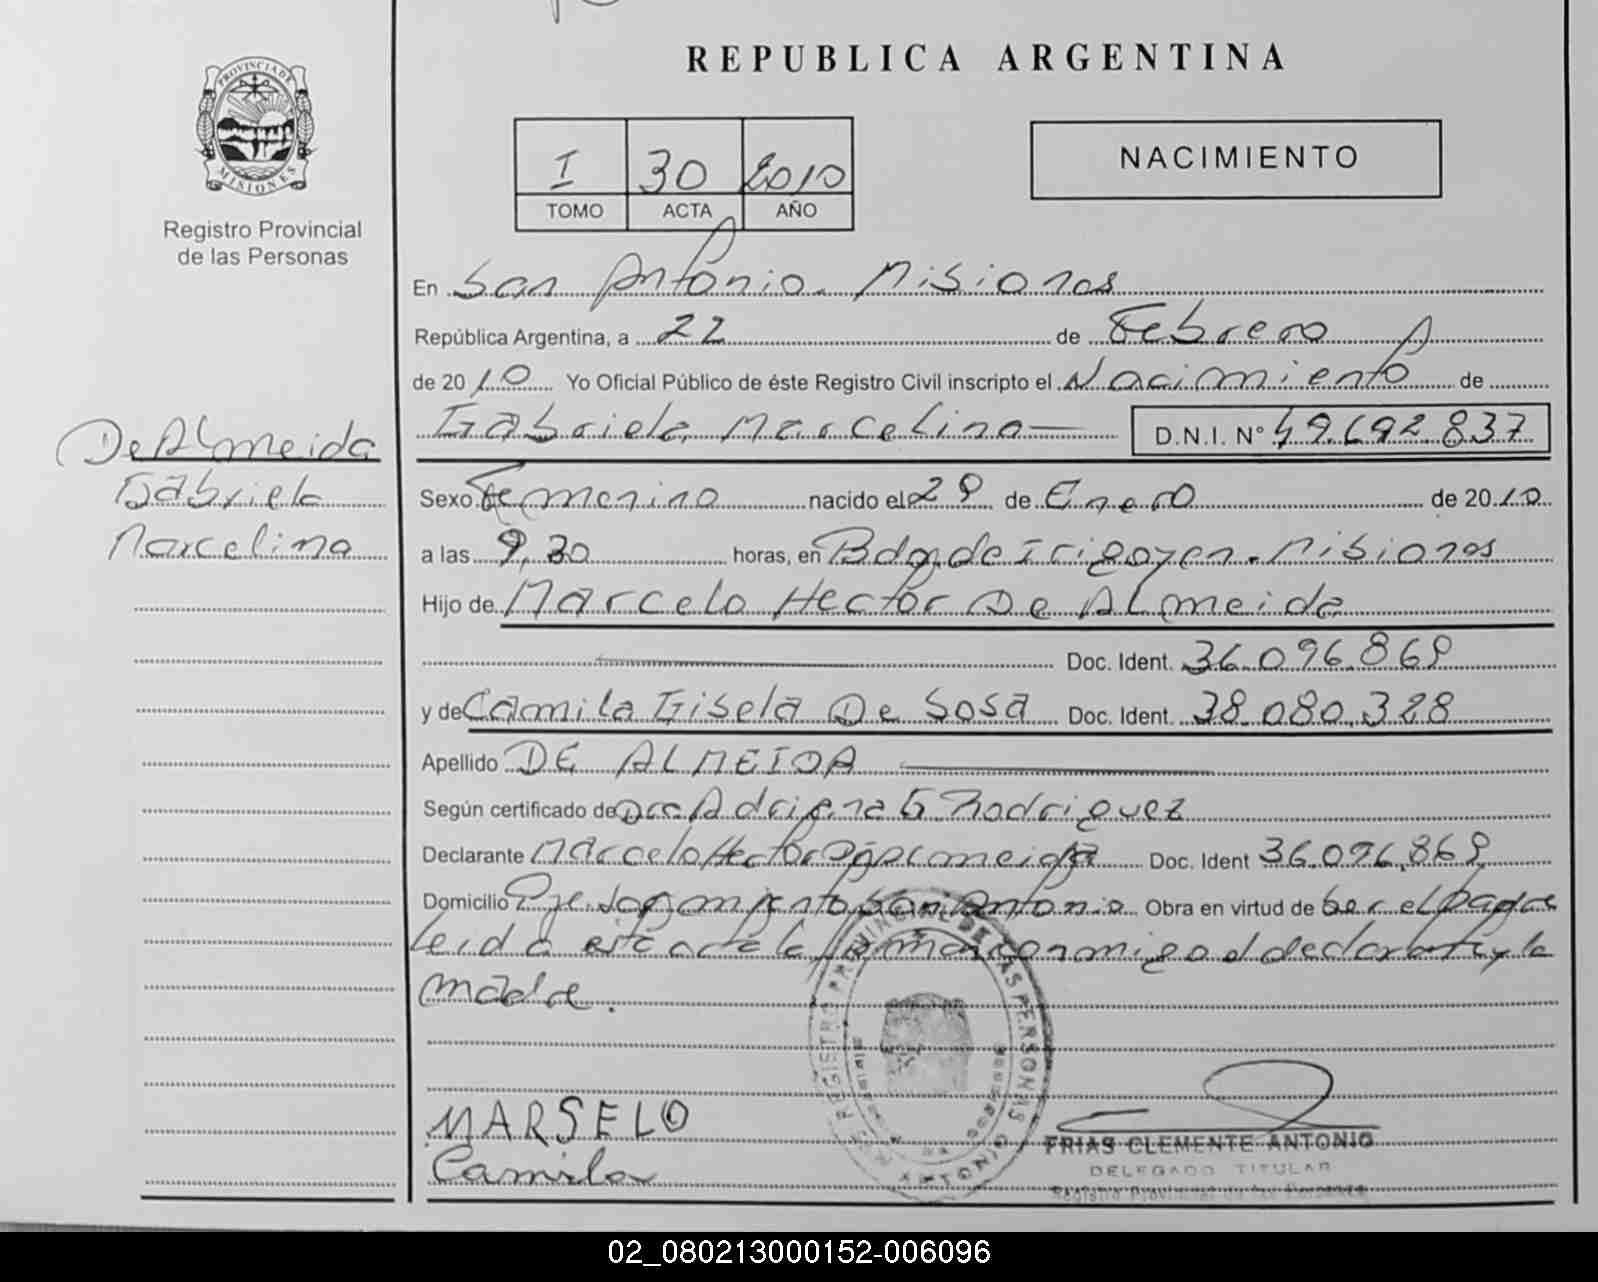 REPUBLICA ARGENTINA
PROVINCIA DE MISIONES
Registro Provincial
de las Personas
I 30 2010
TOMO ACTA AÑO
NACIMIENTO
En San Antonio. Misiones
República Argentina, a 22 de Febrero
de 2010 Yo Oficial Público de éste Registro Civil inscripto el Nacimiento de
Gabriela Marcelina D.N.I. N° 49.692.837
De Almeida
Gabriela
Marcelina
Sexo Femenino nacido el 29 de Enero de 2010
a las 9,30 horas, en Bdo. de Irigoyen. Misiones
Hijo de Marcelo Hector De Almeida
Doc. Ident. 36.096.869
y de Camila Gisela De Sosa Doc. Ident. 38.080.328
Apellido DE ALMEIDA
Según certificado de Dra Adriana G Rodriguez
Declarante Marcelo Hector De Almeida Doc. Ident 36.096.869
Domicilio San Antonio Obra en virtud de ser el padre
Leida esta acta la firman conmigo el declarante y la
madre.
MARSELO
Camila
REGISTRO PROVINCIAL DE LAS PERSONAS
FRIAS CLEMENTE ANTONIO
DELEGADO TITULAR
Registro Provincial de las Personas
02_080213000152-006096